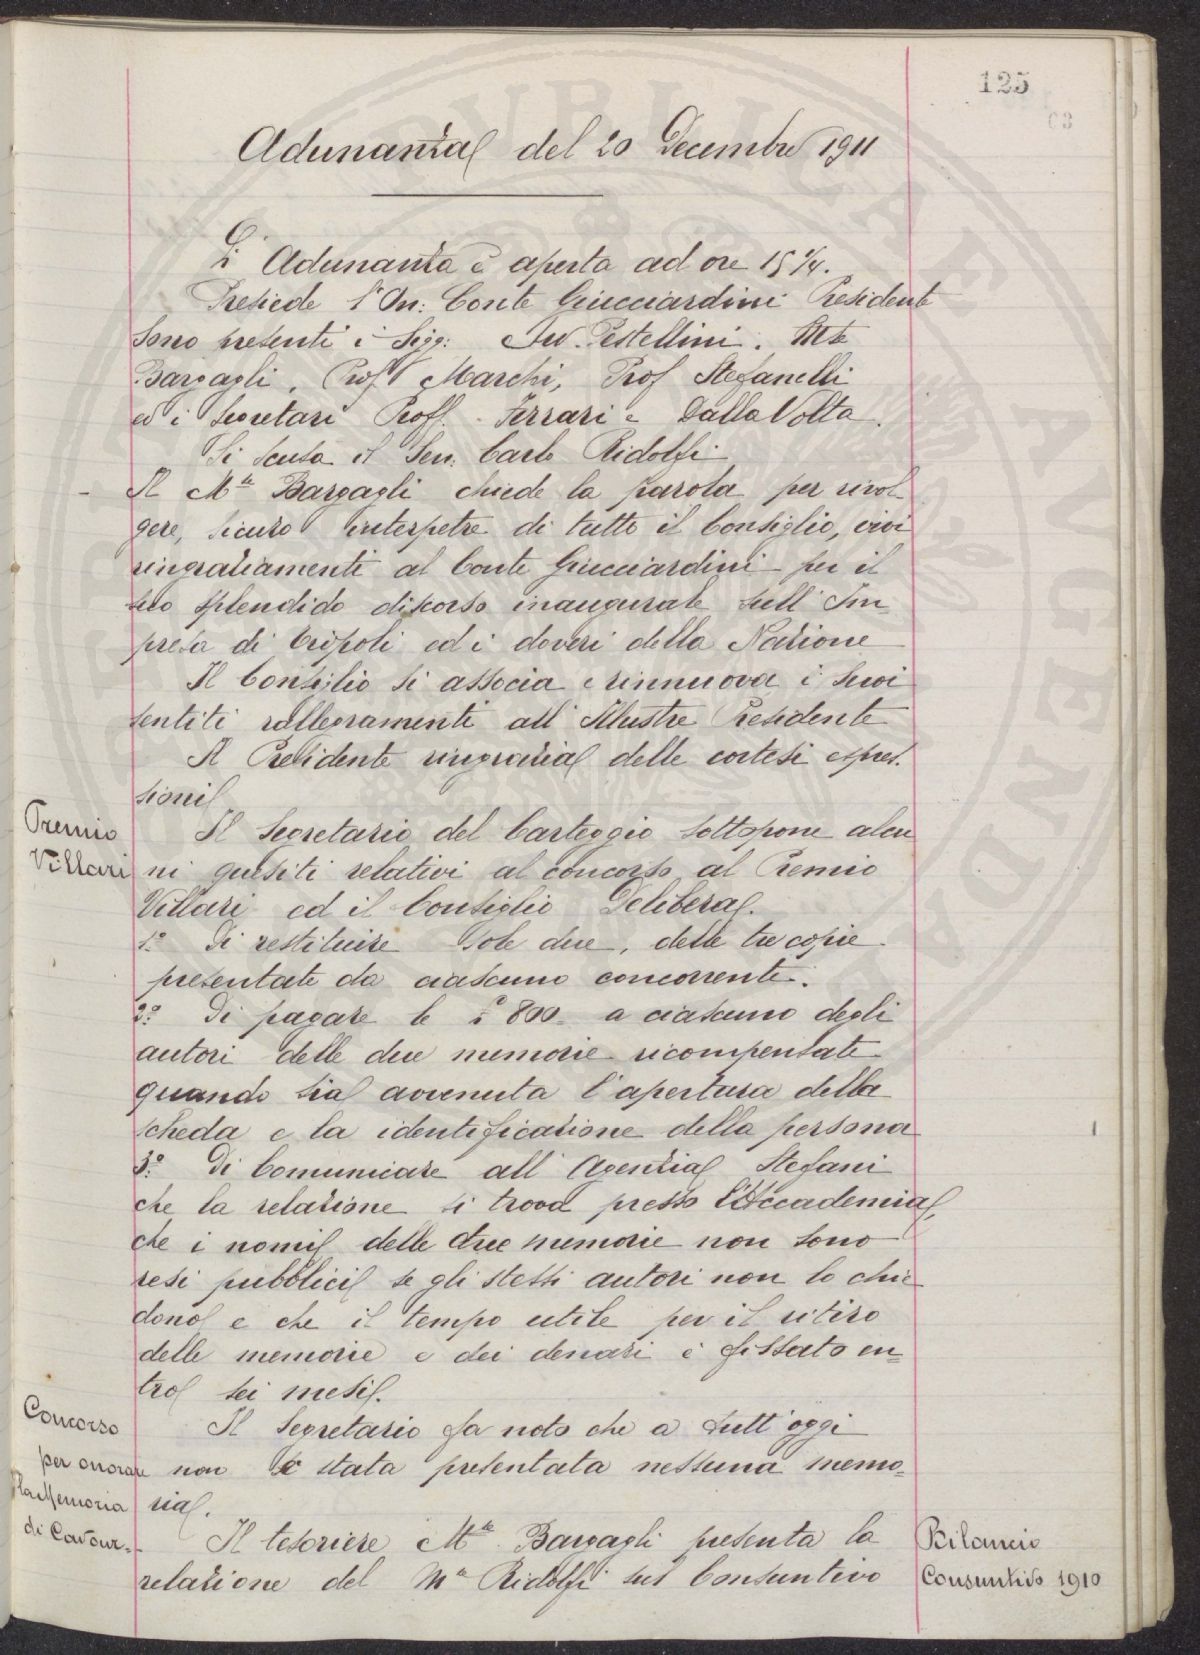 125
63
Adunanza del 20 Decembre 1911
L'Adunanza è aperta ad ore 15 1/4.
Presiede l'On: Conte Guicciardini Presidente
Sono presenti i Sigg: Avv. Pestellini. Mse
Bargagli, Prof Marchi, Prof Stefanelli
ed i Segretari Proff. Ferrari e Dalla Volta.
Si scusa il Sen: Carlo Ridolfi
Il Mse Bargagli chiede la parola per rivol
gere, sicuro interpetre di tutto il Consiglio, vivi
ringraziamenti al Conte Guicciardini per il
suo splendido discorso inaugurale sull'Im-
presa di Tripoli ed i doveri della Nazione
Il Consiglio si associa e rinnuova i suoi
sentiti rallegramenti all'Illustre Presidente
Il Presidente ringrazia delle cortesi espres.
sioni
Premio
Villari
Il Segretario del Carteggio sottopone alcu
ni quesiti relativi al concorso al Premio
Villari ed il Consiglio Delibera.
1.º Di restituire sole due, delle tre copie
presentate da ciascuno concorrente.
2.º Di pagare le £ 800 a ciascuno degli
autori delle due memorie ricompensate
quando sia avvenuta l'apertura della
scheda e la identificazione della persona
3.º Di Comunicare all'Agenzia Stefani
che la relazione si trova presso l'Accademia,
che i nomi delle due memorie non sono
resi pubblici se gli stessi autori non lo chie
dono e che il tempo utile per il ritiro
delle memorie e dei denari è fissato en=
tro sei mesi.
Concorso
per onorare
la Memoria
di Cavour.-
Il Segretario fa noto che a tutt'oggi
non è stata presentata nessuna memo=
ria.
Il tesoriere Mse Bargagli presenta la
relazione del Mse Ridolfi sul Consuntivo
Bilancio
Consuntivo 1910